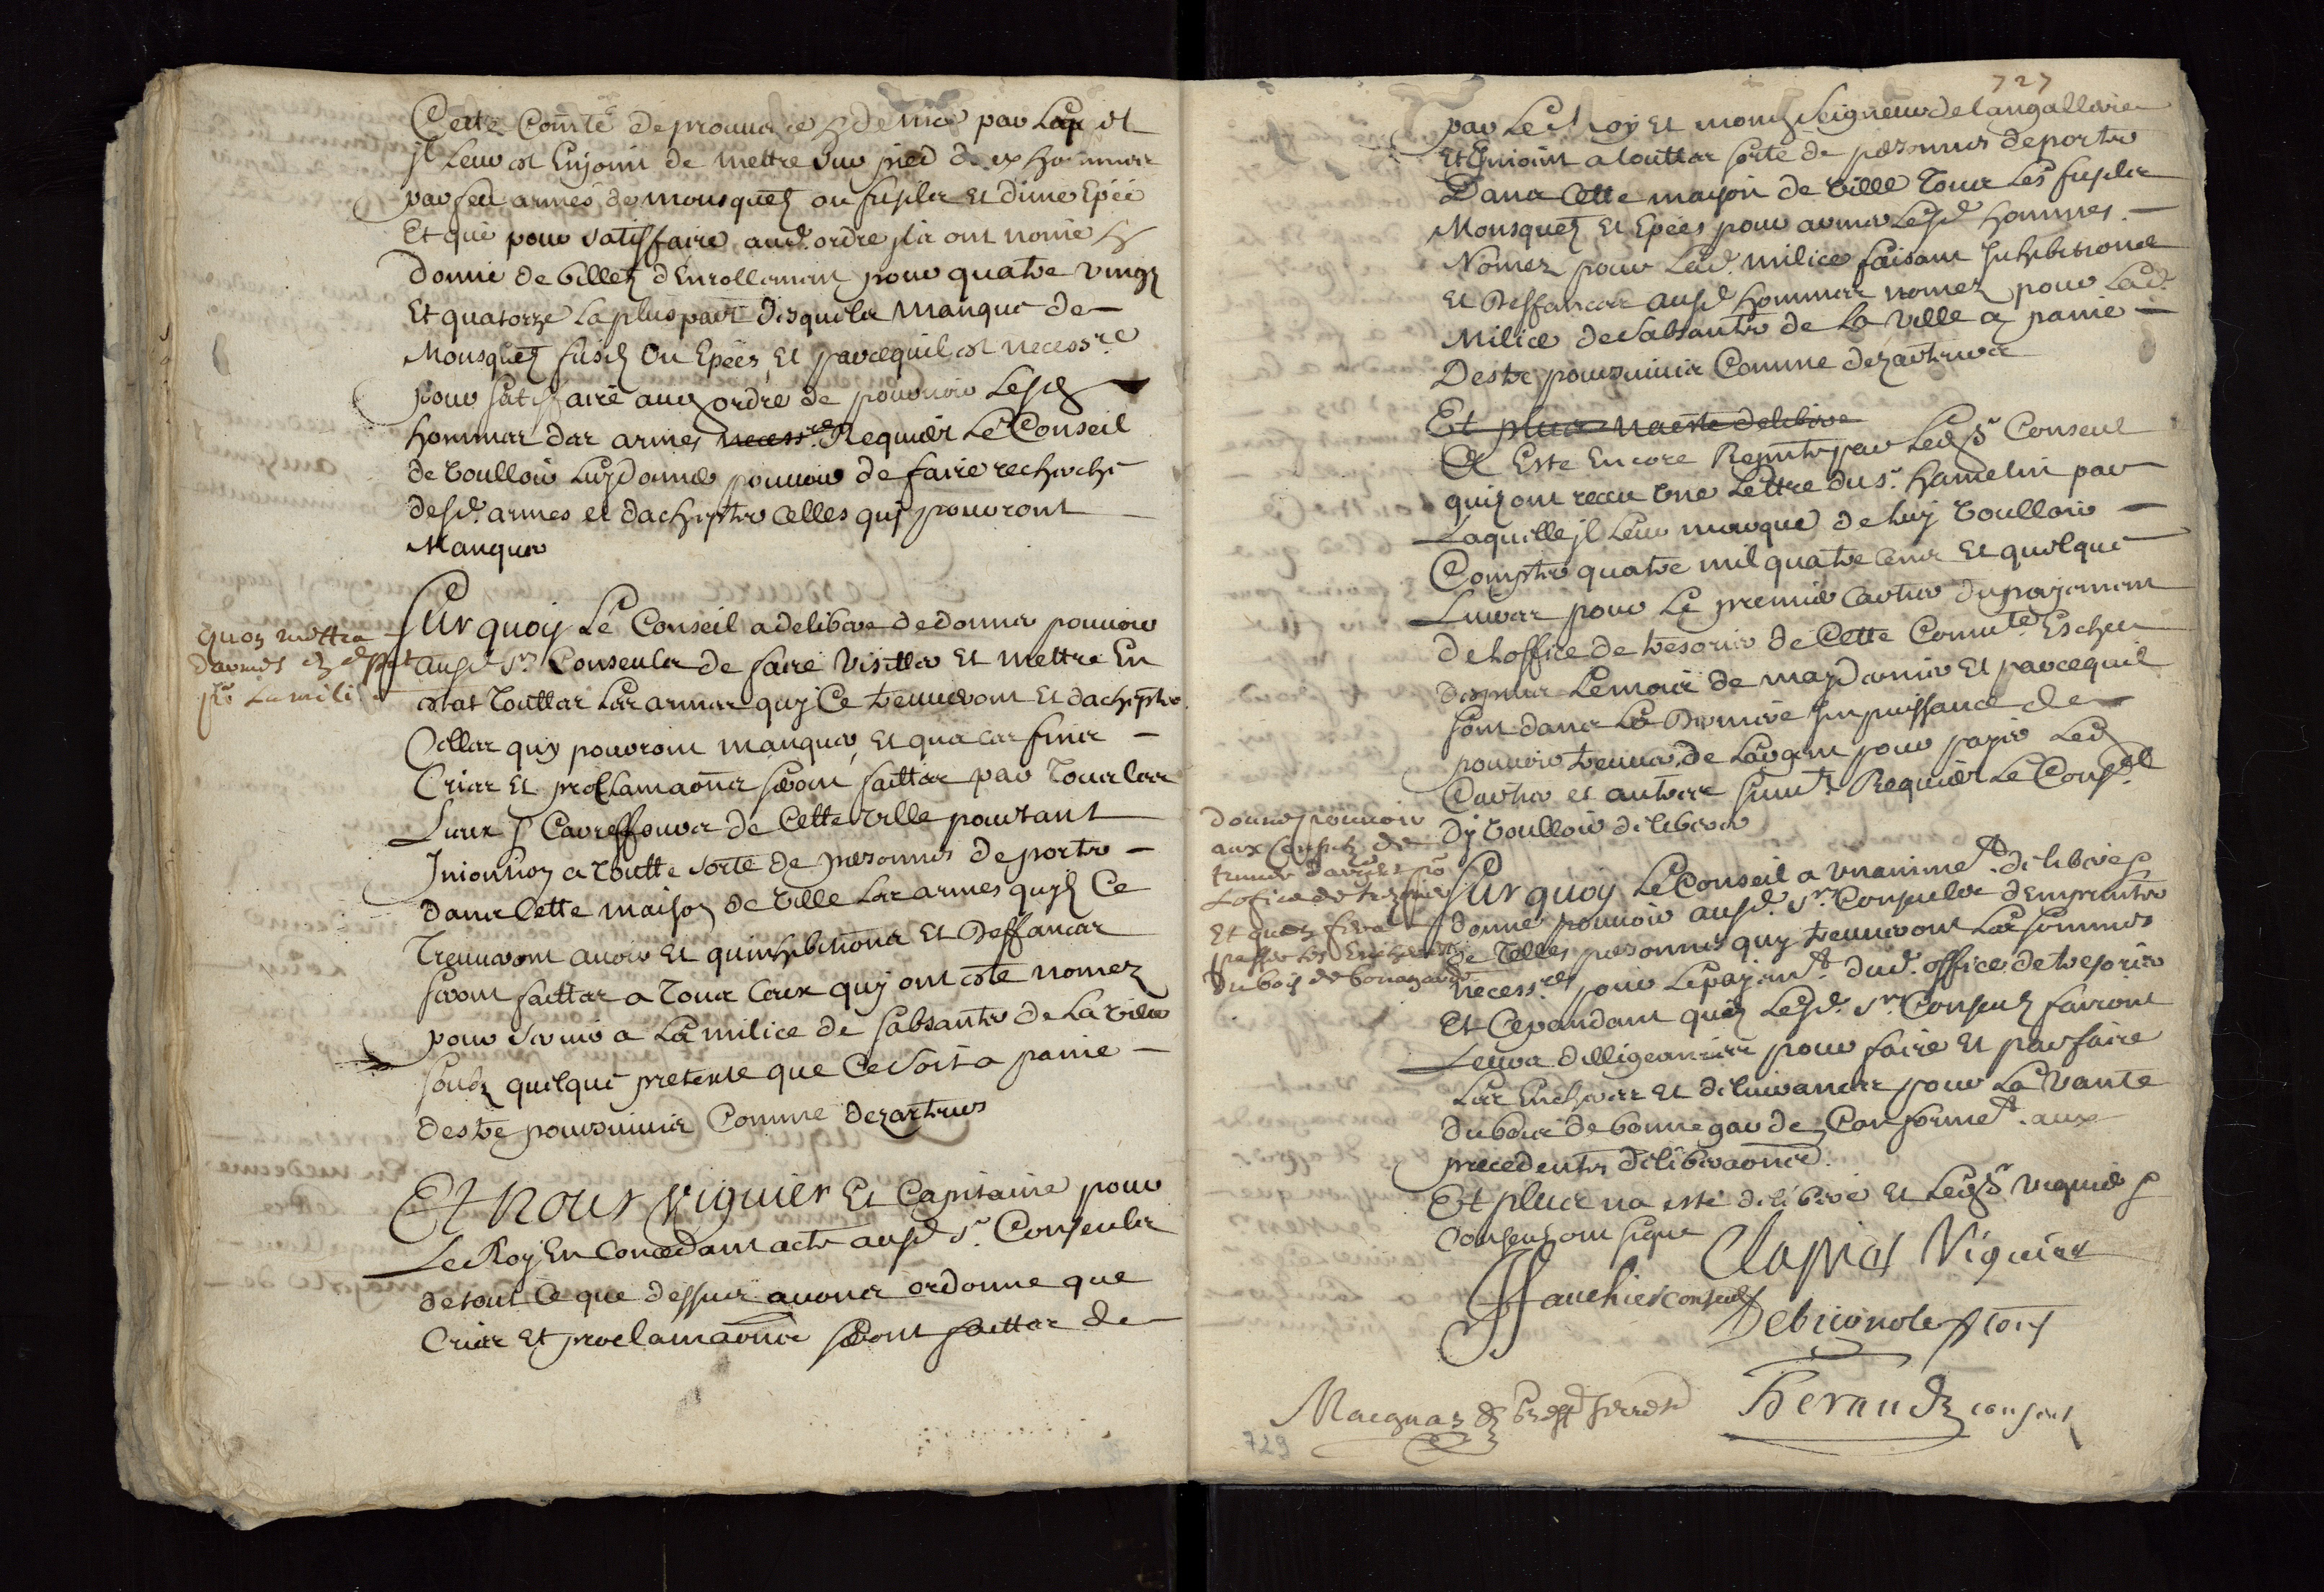 Cette Comté de provance & de nice par Laq it
jl Leur est Enjoint de mettre sur pied dix hommes
par feu armés de mousquetz ou fuzils et dune Epée
Et que pour satisfaire aud. ordre jls ont nomé &
donné de billetz dEnrollemant pour quatre vingz
Et quatorze La pluspart desquels manque de
Mousquetz fuzilz Ou Epées, Et parcequil est necess.re
pour satisfaire aud ordre de pourvoir Lesd
hommes des armes necess.res Requier Le Conseil
de voulloir Luy donner pouvoir de faire recherche
desd. armes et dachepter celles quy pouront
Manquer
Sur quoy Le Conseil a deliberé de donner pouvoir
ausd. Srs Conseuls de faire visitter Et mettre En
estat Touttes Les armes quy Ce treuveront Et dachepter
Celles quy pouroint manquer, Et qua ces fins
Cries Et proclamaōns seront faittes par Tous les
Lieux & Carreffours de Cette ville pourtant
Injonction a Toutte sorte de personnes de porter
dans Cette maison de ville Les armes quylz Ce
Treuveront avoir Et quinhibitions Et deffances
seront faittes a Tous Ceux quy ont esté nomez
pour servir a La milice de sabsanter de La ville
soubz quelque pretexte que Ce soit a paine
destre poursuivis Comme dezerteurs
Et Nous Viguier Et Capitaine pour
Le Roy En Concedant acte ausd. Srs Conseuls
de tout Ce que dessus avons ordonné que
Cries Et proclamaōns seront faittes de
quon mettra
darmes En estat
po.r La milice
727
par Le Roy Et monseigneur de langallerie
Et Enioint a Touttes sorte de personnes de porter
Dans Cette mayson de ville Tous Les fuzils
Mousquetz Et Epées pour armer Lesd. hommes
Nomez pour Lad. milice faisant Inhibitions
Et Deffances ausd. hommes nomez pour Lad.
Milice de sabsanter de La ville a paine
Destre poursuivis Comme dezerteurs
Et plus na esté deliberé
A Esté Encore Reprezanté par Lesd. Srs Conseuls
quilz ont receu Une Lettre du sr. hamelin par
Laquelle jl Leur marque de luy voulloir
Compter quatre mil quatre cens Et quelque
Livres pour Le premier cartier du payement
de Loffice de tresorier de Cette Comun.té Escheu
despuis Le mois de may dernier Et parcequil
sont dans La Derniere Impuissance de
pouvoir treuver de Largent pour payer Led
Cartier et autres suiv.ts Requier Le Conseil
dy voulloir deliberer
Sur quoy Le Conseil a unanimem.t deliberé &
donné pouvoir ausd. Srs Conseuls dEmprunter
de Telles personnes quy treuveront Les sommes
necess.res pour Le payem.t dud. office de tresorier
Et Cepandant que Lesd. Srs Conseulz fairont
Leurs dilligeances pour faire Et parfaire
Les Encheres Et delivrances pour La vante
du bois de bonnegarde, Conformem.t aux
precedentes deliberaōns.
Et plus na esté deliberé Et Lesd. Srs viguier &
Conseulz ont signé
donner pouvoir
aux Conseulz de
treuver dargent po.r
Lofice de trezorier
Et quon fera
passer les Encheres
du bois de bonagarde
Clapiers Viguier
Fauchier conseul
Debrignole Cons
Heraudz conseul
729